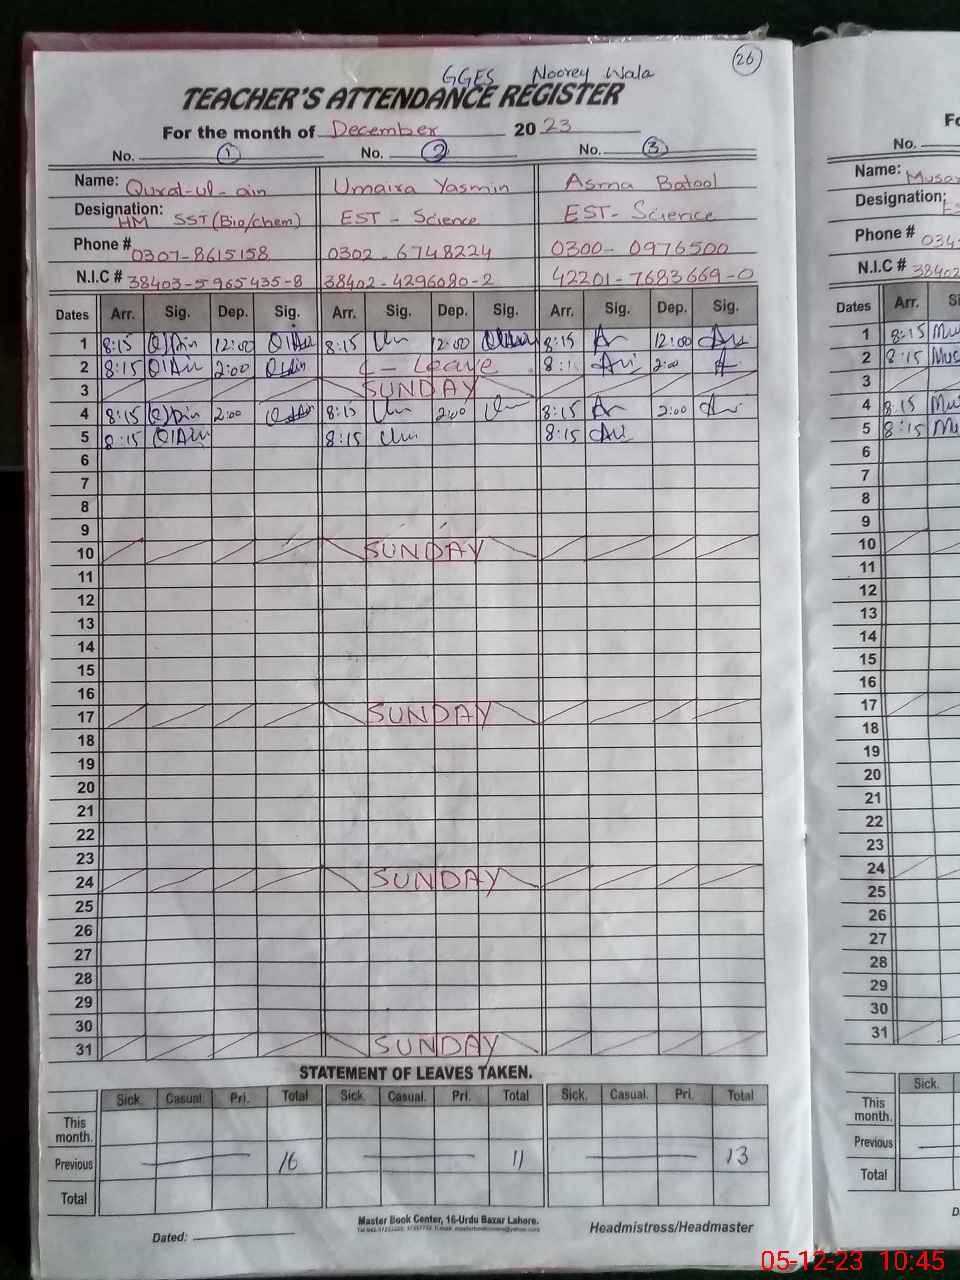 26
GGES Noorey Wala
TEACHER'S ATTENDANCE REGISTER
For the month of December 2023
No. 1 No. 2 No. 3
Name: Qurat-ul-ain Umaira Yasmin Asma Batool
Designation: HM SST (Bio/chem) EST - Science EST - Science
Phone # 0307-8615158 0302-6748224 0300-0976500
N.I.C # 38403-5965435-8 38402-4296080-2 42201-7683669-0
Dates Arr. Sig. Dep. Sig. Arr. Sig. Dep. Sig. Arr. Sig. Dep. Sig.
1 8:15 12:00 8:15 12:00 8:15 12:00
2 8:15 2:00 C-Leave 8:1 2:00
3 SUNDAY
4 8:15 2:00 8:15 2:00 8:15 2:00
5 8:15 8:15 8:15
6
7
8
9
10 SUNDAY
11
12
13
14
15
16
17 SUNDAY
18
19
20
21
22
23
24 SUNDAY
25
26
27
28
29
30
31 SUNDAY
STATEMENT OF LEAVES TAKEN.
Sick. Casual. Pri. Total Sick. Casual. Pri. Total Sick. Casual. Pri. Total
This month.
Previous 16 11 13
Total
Master Book Center, 16-Urdu Bazar Lahore.
Dated: Headmistress/Headmaster
No.
Name:
Designation:
Phone # 034
N.I.C # 38402
Dates Arr.
1 8:15
2 8:15
3
4 8:15
5 8:15
6
7
8
9
10
11
12
13
14
15
16
17
18
19
20
21
22
23
24
25
26
27
28
29
30
31
Sick.
This month.
Previous
Total
05-12-23 10:45